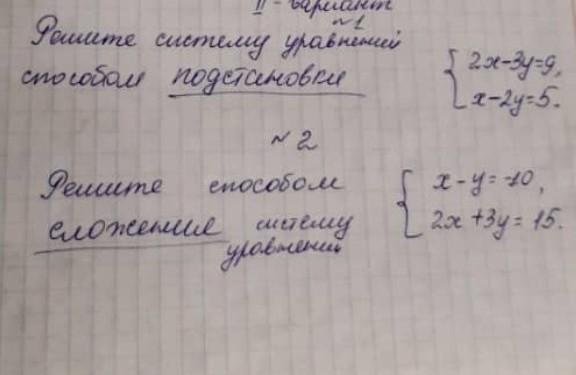 II - вариант
№1
Решите систему уравнений
способом подстановки
{ 2x-3y=9,
x-2y=5.
№2
Решите способом
сложения систему
уравнений
{ x-y=-10,
2x+3y=15.